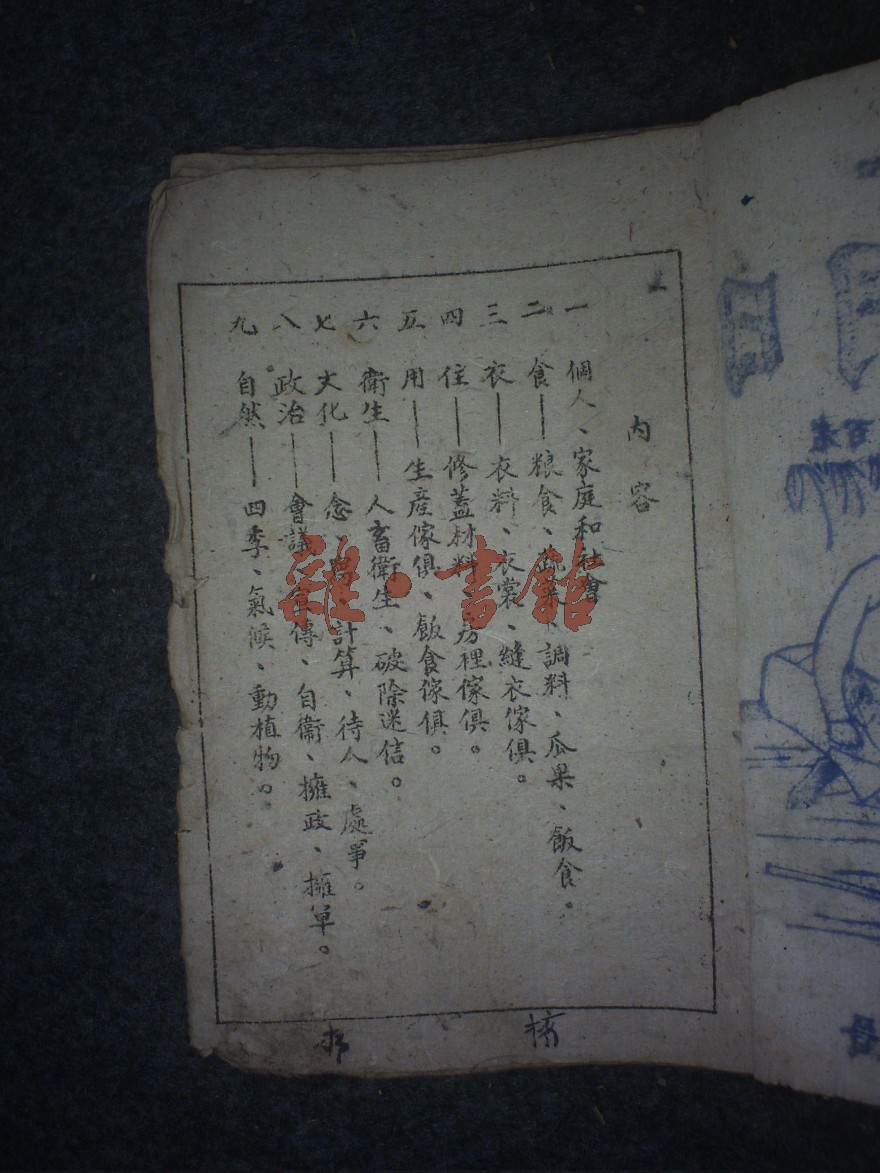 內容
一 個人、家庭和社會
二 食——粮食、蔬菜、調料、瓜果、飯食。
三 衣——衣料、衣裳、縫衣傢俱。
四 住——修蓋材料、房裡傢俱。
五 用——生產傢俱、飯食傢俱。
六 衛生——人畜衛生、破除迷信。
七 文化——念、寫、計算、待人、處事。
八 政治——會議、宣傳、自衛、擁政、擁軍。
九 自然——四季、氣候、動植物。
雜·書館